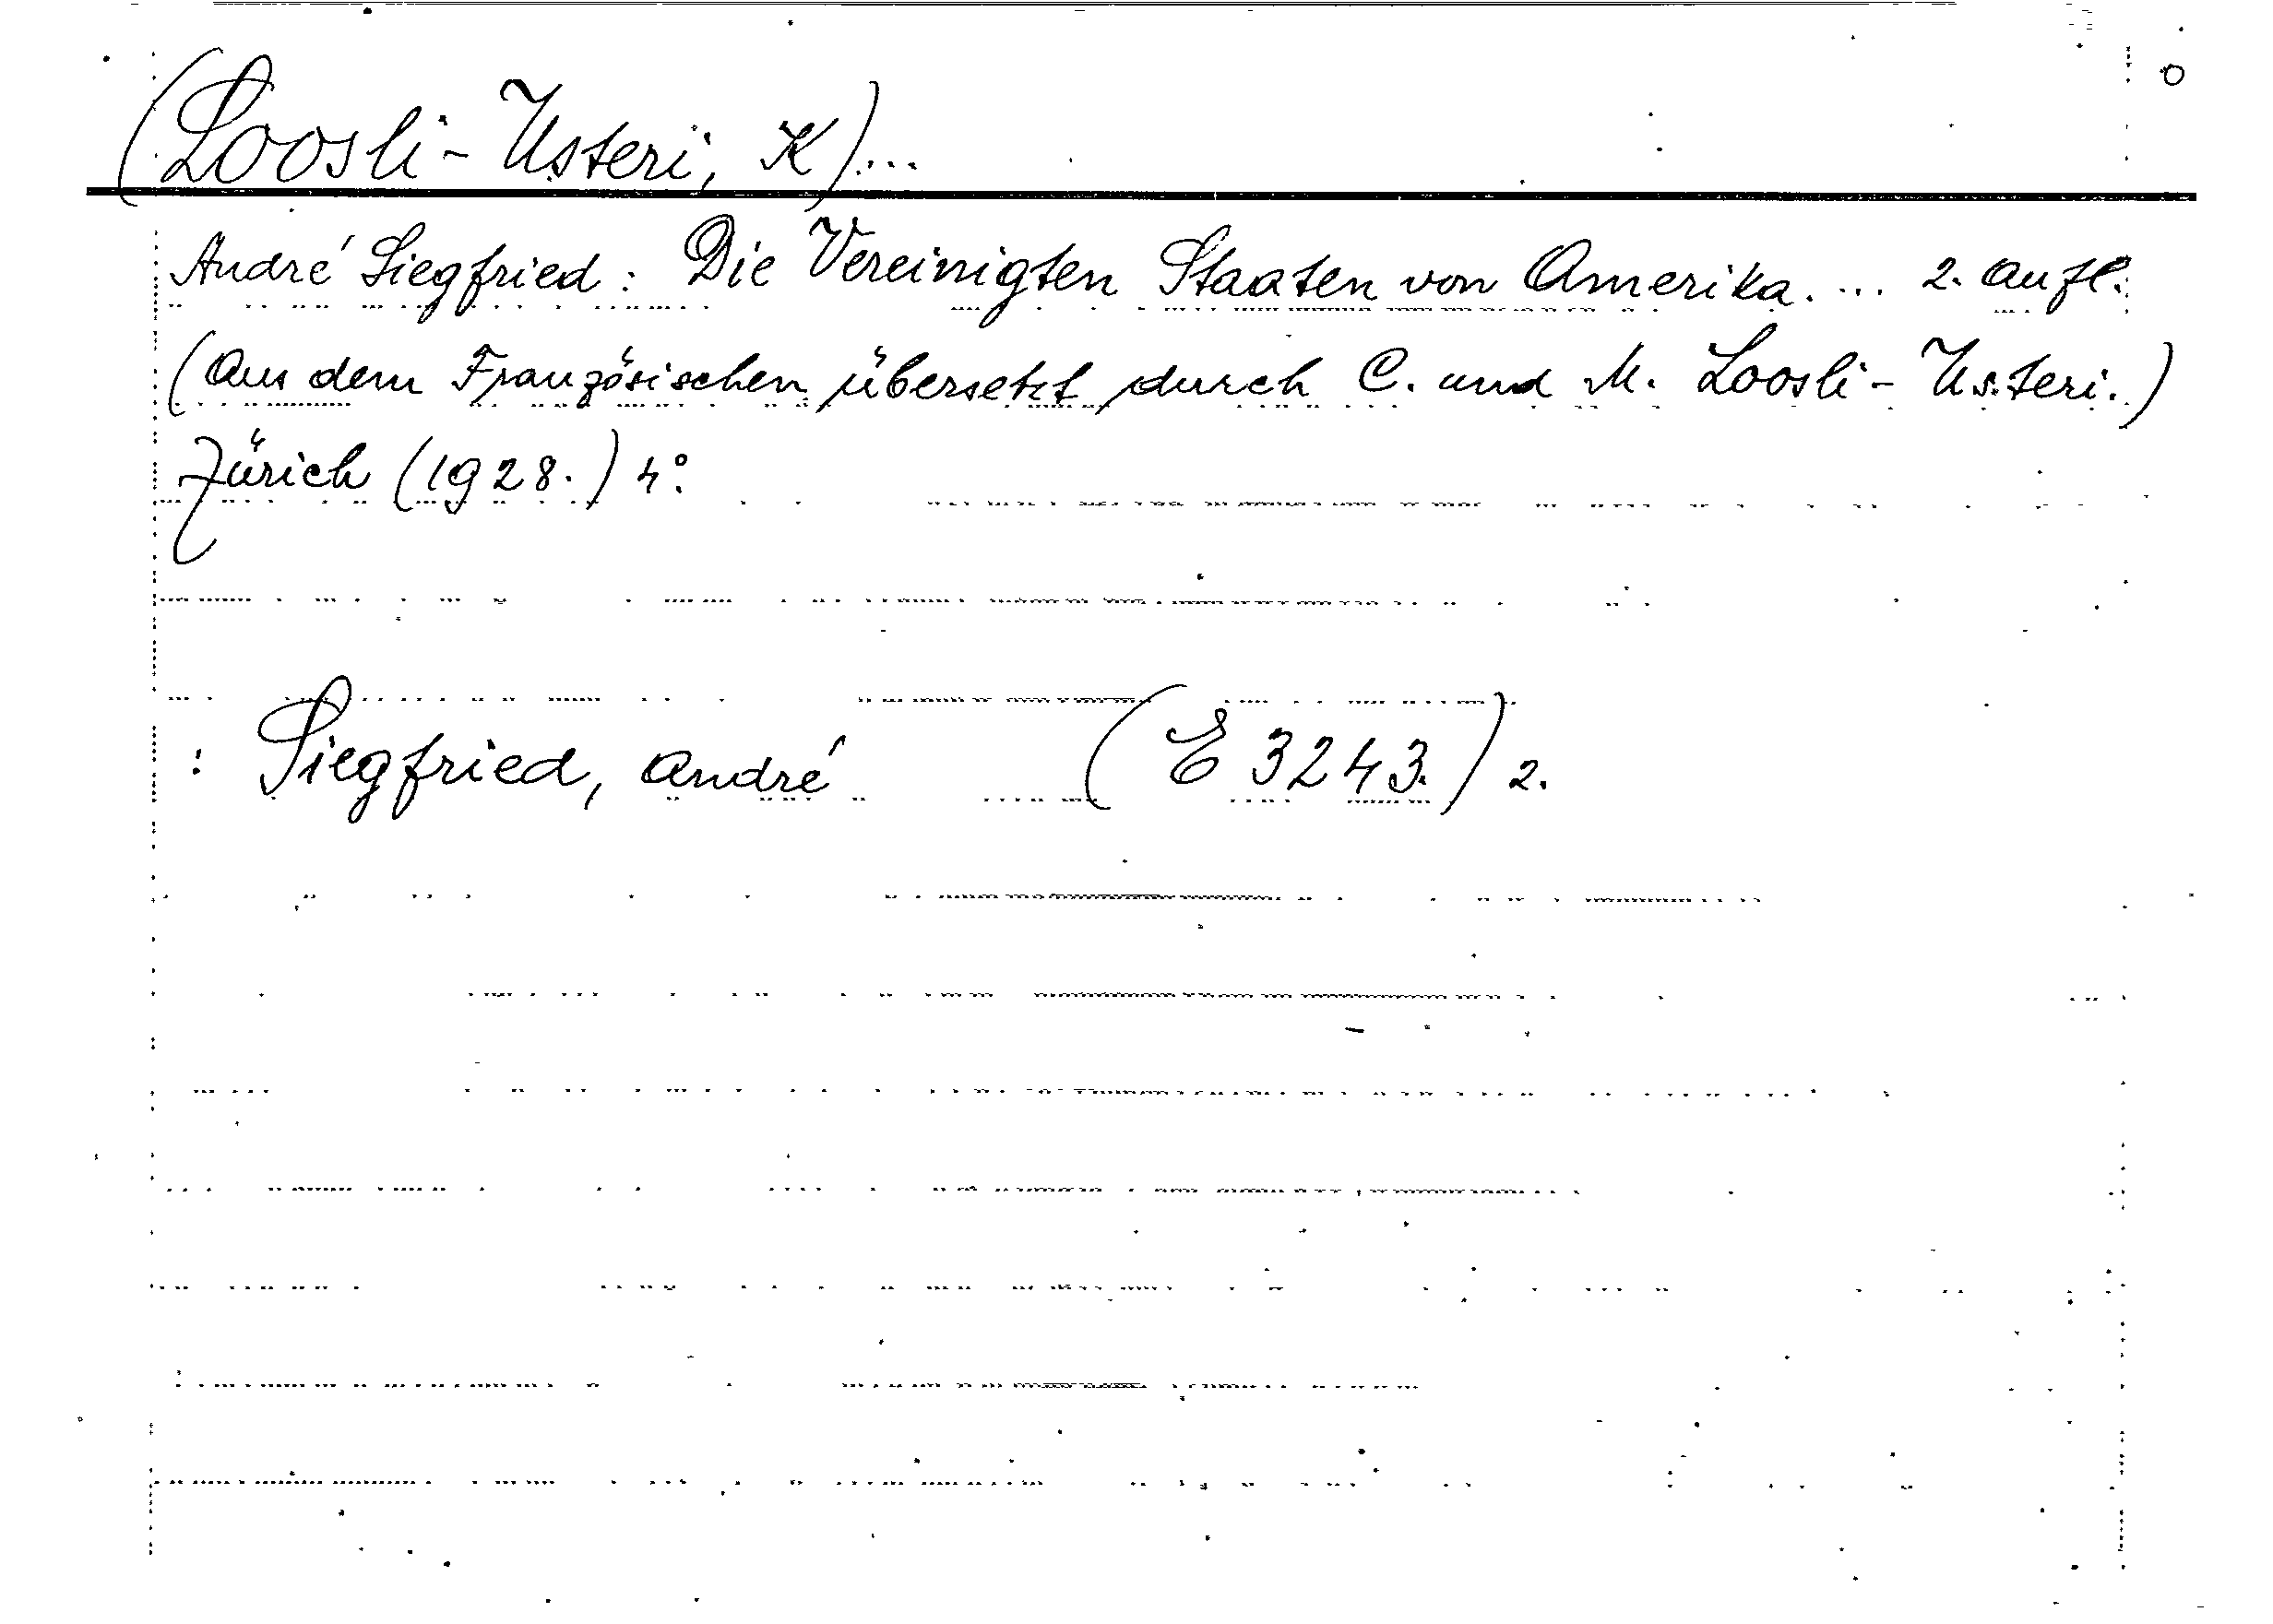 (Loosli-Usteri, K)...
André Siegfried: Die Vereinigten Staaten von Amerika. ... 2. Aufl.
(Aus dem Französischen übersetzt durch C. und M. Loosli-Usteri.)
Zürich (1928.) 4°.
: Siegfried, André (E 3243.) 2.